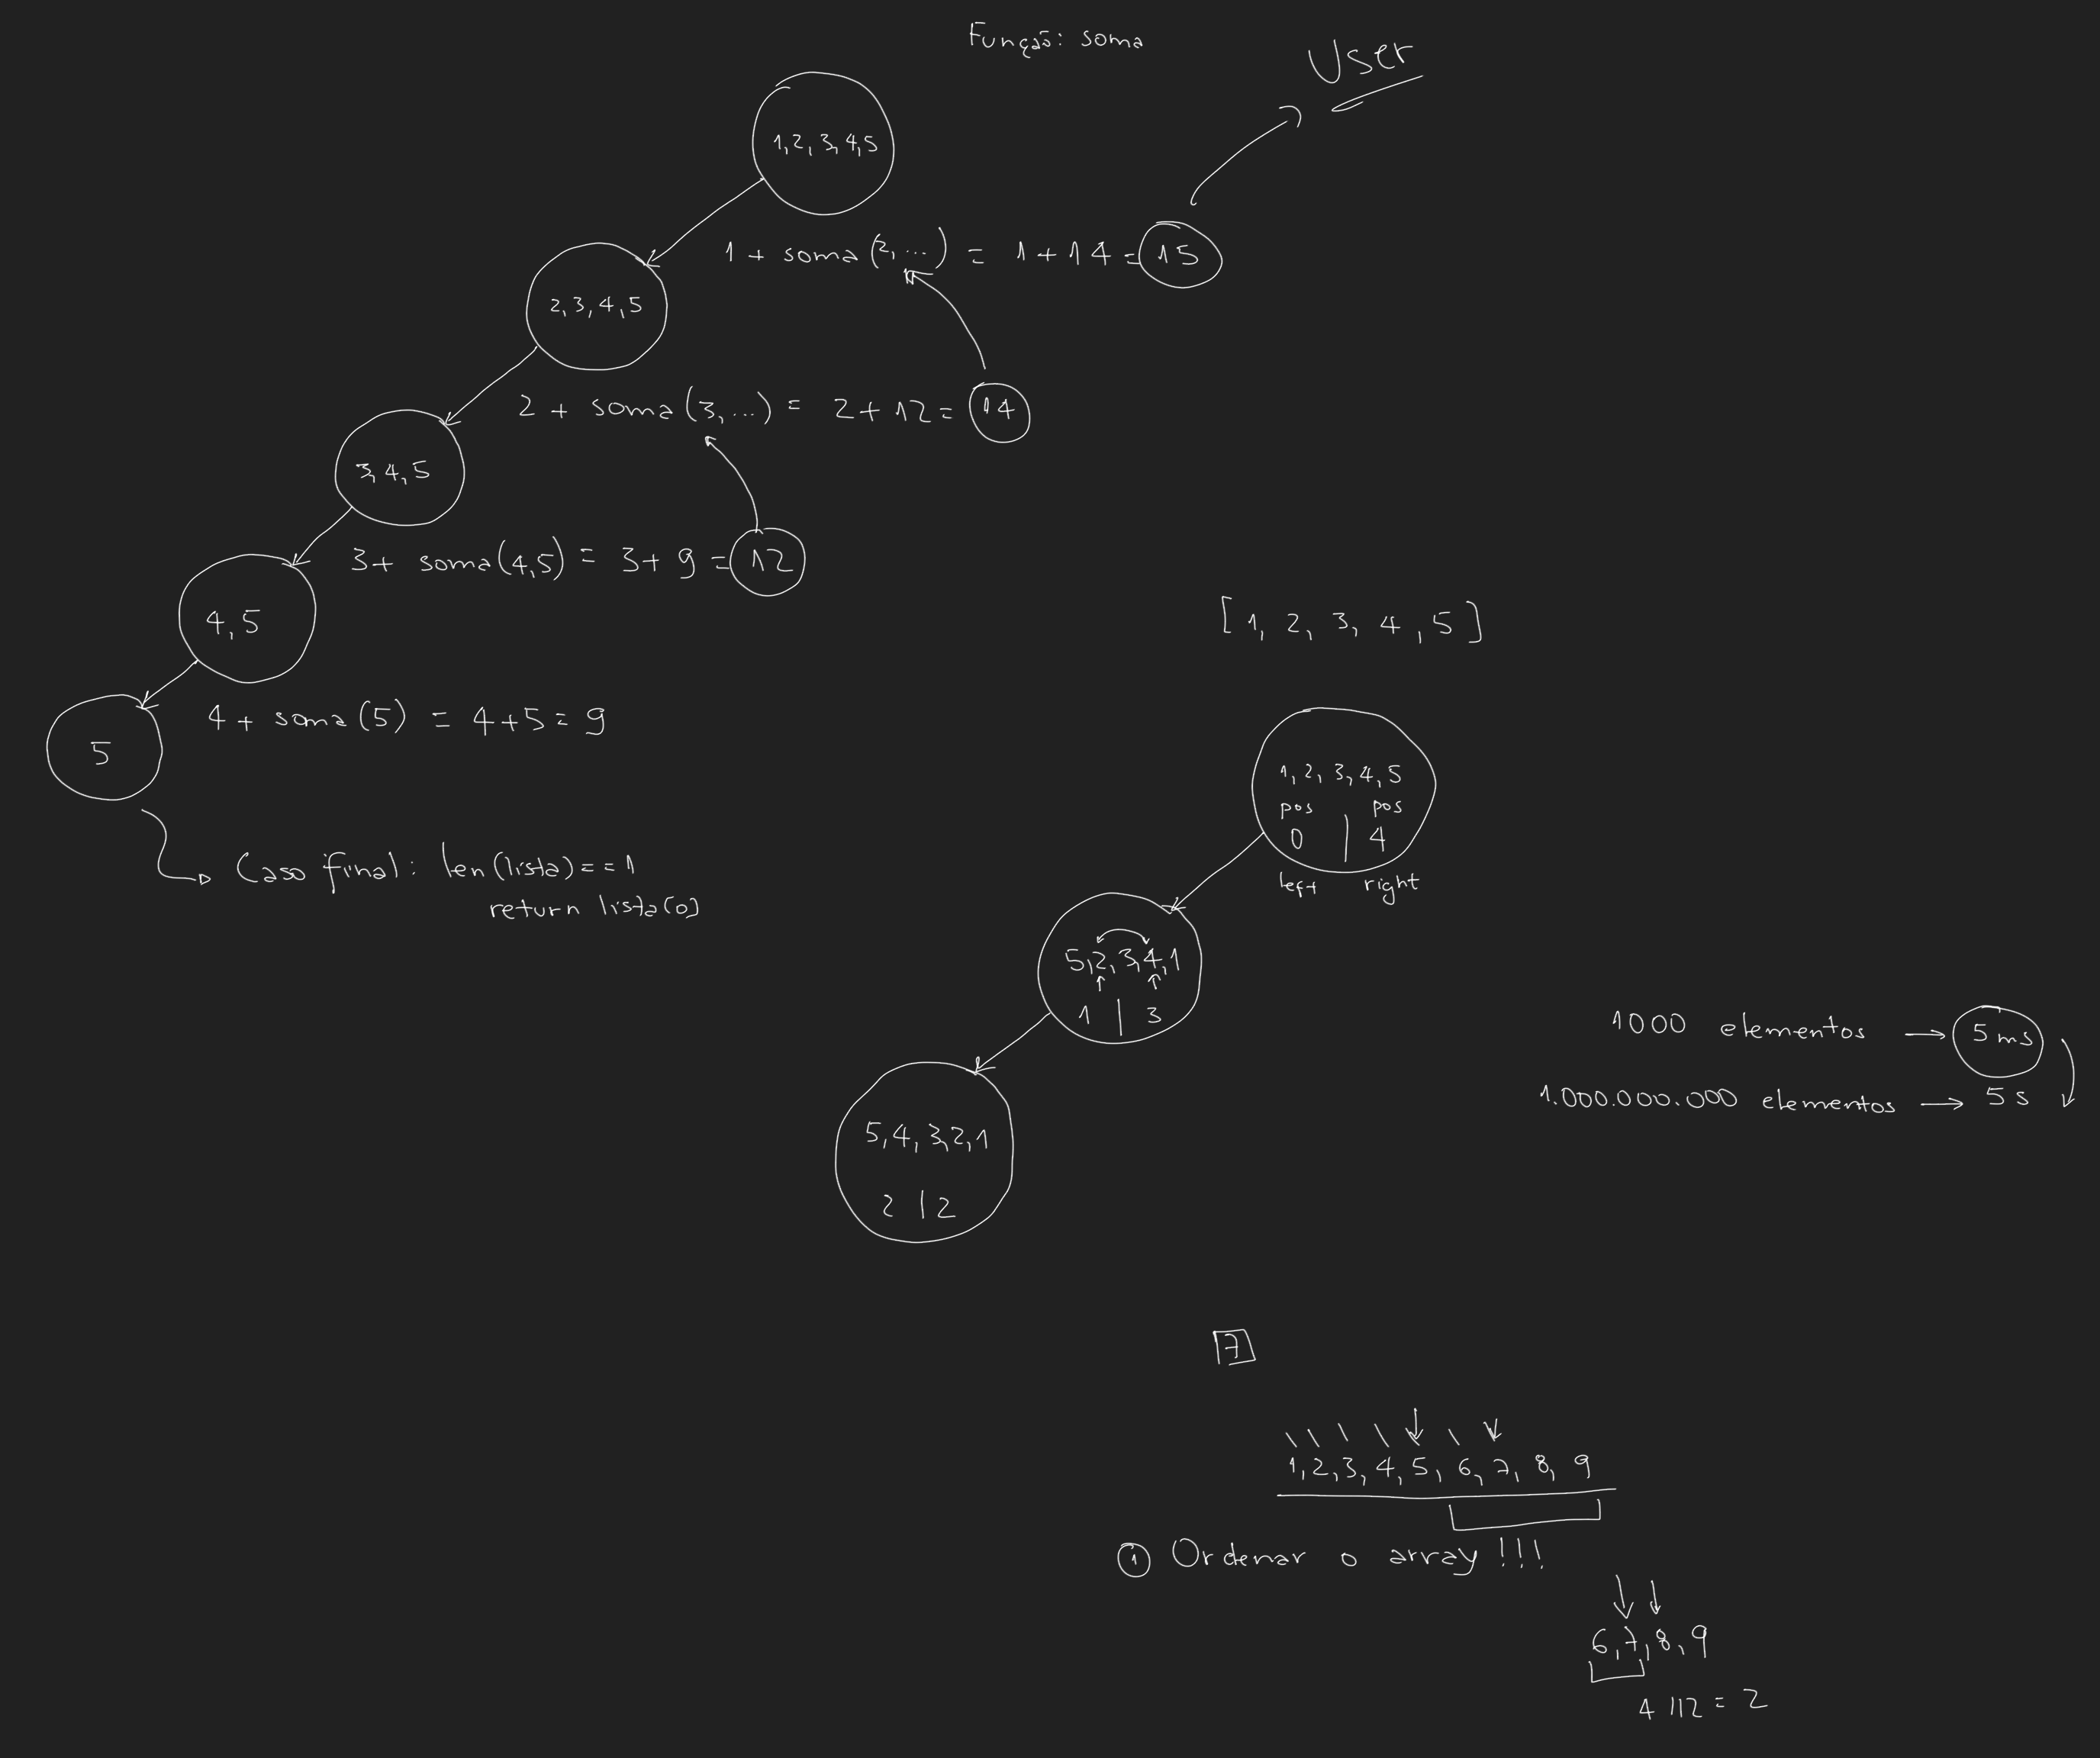 Função: soma
User
1,2,3,4,5
1 + soma (2,...) = 1+14 = 15
2,3,4,5
2 + soma (3,...) = 2+12 = 14
3,4,5
3+ soma(4,5) = 3+ 9 = 12
4,5
4 + soma (5) = 4+5 = 9
5
Caso final: len(lista)==1
return lista(0)
[1, 2, 3, 4, 5]
1,2,3,4,5
pos pos
0 | 4
left right
5,2,3,4,1
1 | 3
5,4,3,2,1
2 | 2
1000 elementos → 5 ms
1.000.000.000 elementos → 5 s
7
1,2,3,4,5,6,7,8,9
1 Ordenar o array !!!
6,7,8,9
4 //2 = 2